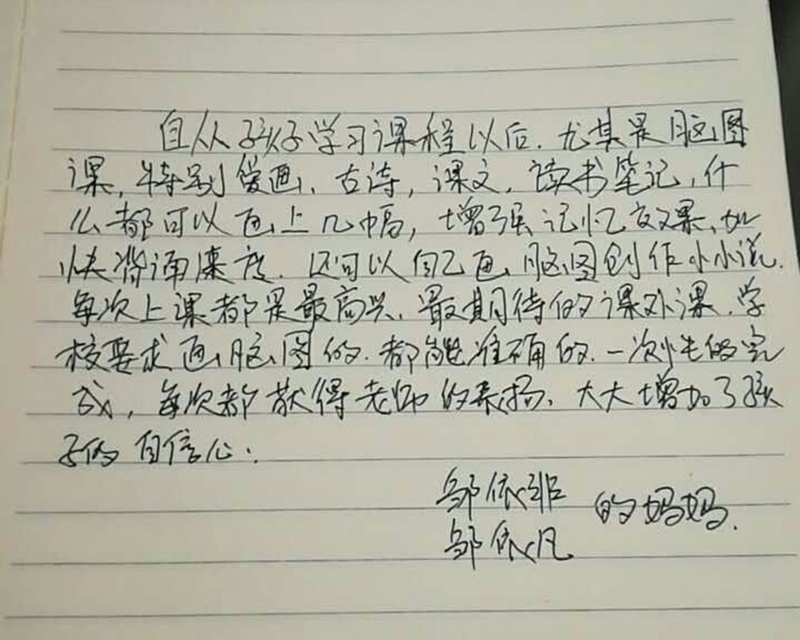 自从孩子学习课程以后.尤其是脑图
课,特别爱画、古诗,课文,读书笔记,什
么都可以画上几幅,增强记忆效果、加
快背诵速度.还可以自己画脑图创作小小说.
每次上课都是最高兴、最期待的课外课.学
校要求画脑图的.都能准确的.一次性的完
成,每次都获得老师的表扬、大大增加了孩
子的自信心.
邹依非
邹依凡 的妈妈.